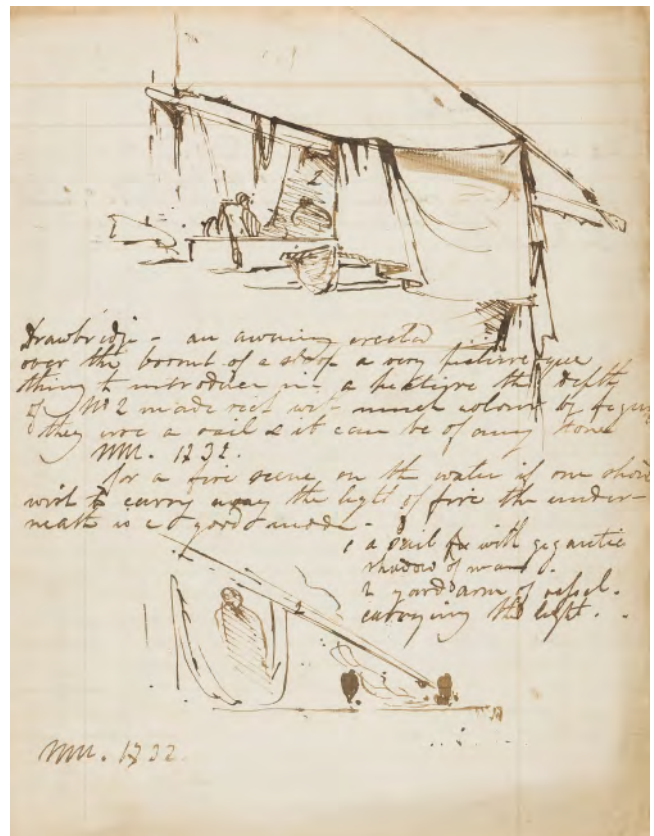 2
Drawbridge - an awning erected
over the boomt of a sloop a very picturesque
thing to introduce in a picture the depth
of No 2 made rich with much colour by figures
they use a sail & it can be of any tone
WM. 1832.
for a fire scene on the water if one should
wish to carry away the light of fire the under-
neath is a good mode -
1 a sail with gigantic
shadow of man.
2 yard arm of vessel.
carrying the light.
2
WM. 1832.